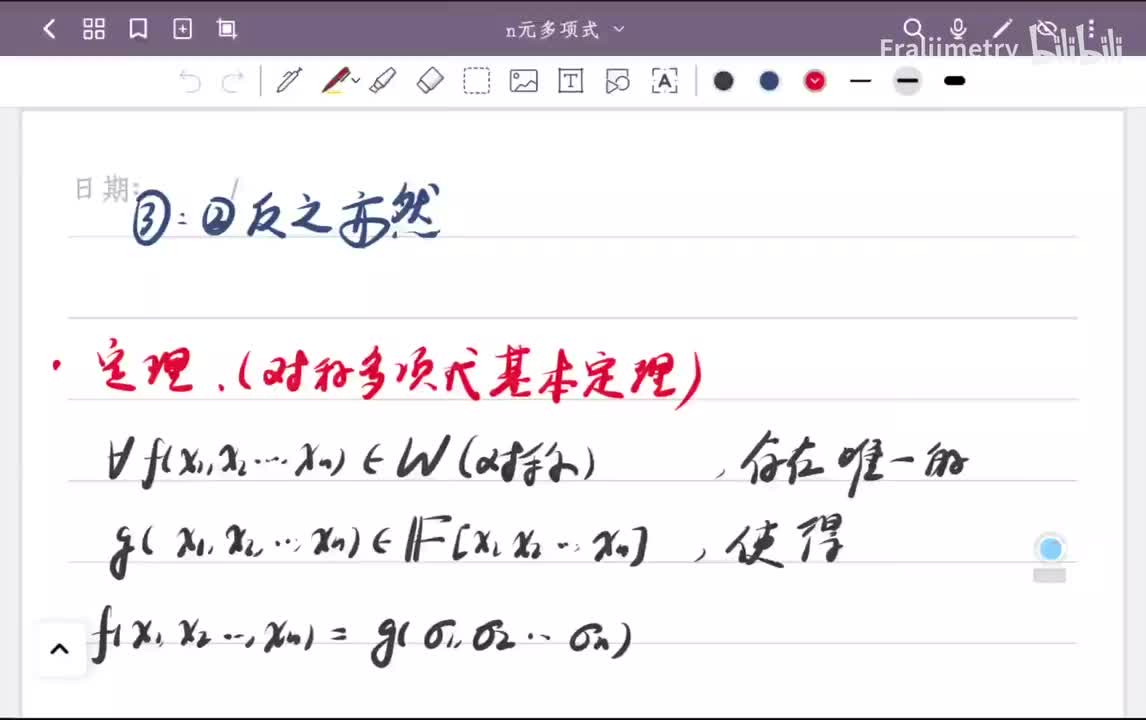 n元多项式
Fraliimetry bilibili
日期:
③:②反之亦然
· 定理.(对称多项式基本定理)
∀ f(x₁,x₂…xₙ)∈W(对称) ,存在唯一的
g( x₁,x₂,…xₙ)∈𝔽[x₁ x₂ …,xₙ] ,使得
f(x₁ x₂ …,xₙ) = g(σ₁,σ₂ … σₙ)